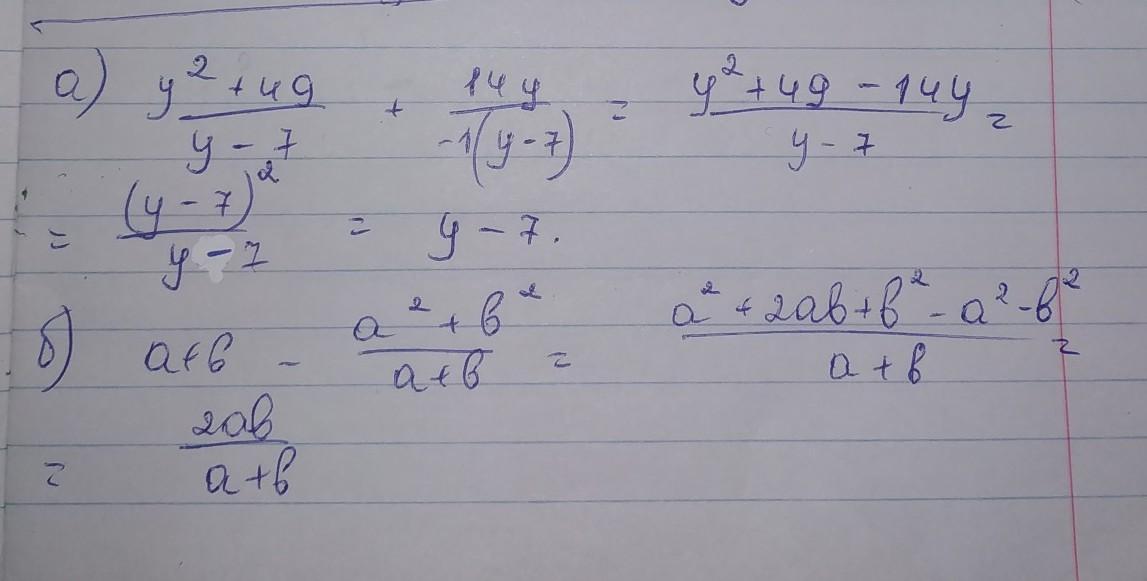 а) (y² + 49)/(y - 7) + 14y/(-1(y - 7)) = (y² + 49 - 14y)/(y - 7) =
= (y - 7)²/(y - 7) = y - 7.
б) a+b - (a² + b²)/(a+b) = (a² + 2ab + b² - a² - b²)/(a + b) =
= 2ab/(a+b)